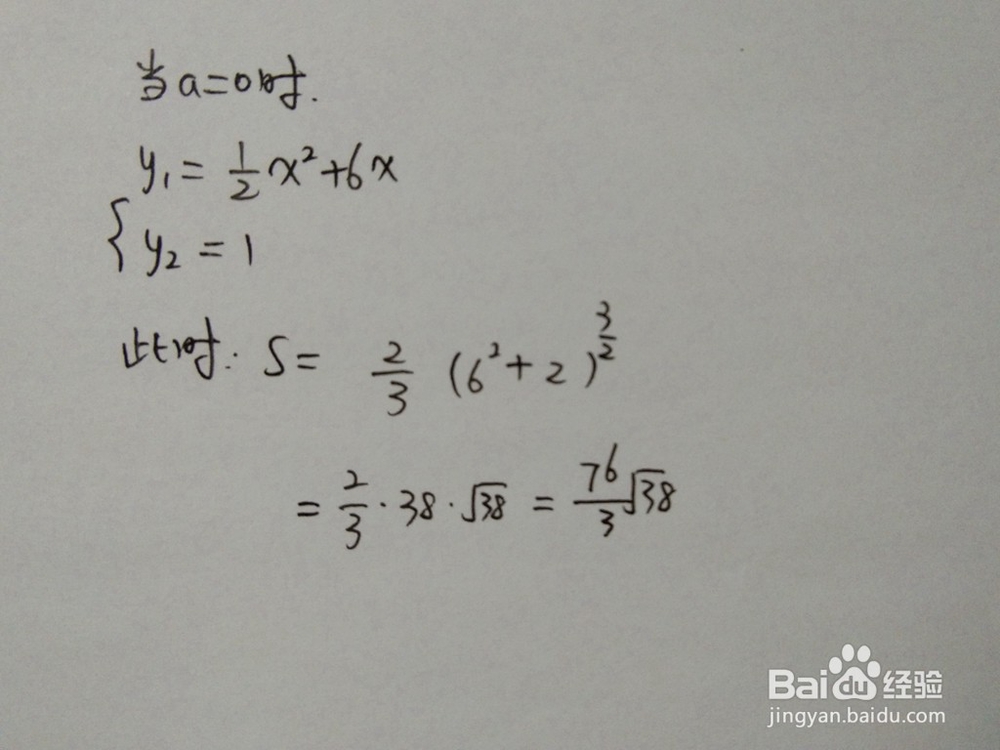 当a=0时.
y₁=½x²+6x
{y₂=1
此时: S= 2/3 (6²+2)^(3/2)
= 2/3·38·√38 = 76/3√38
Baidu经验
jingyan.baidu.com